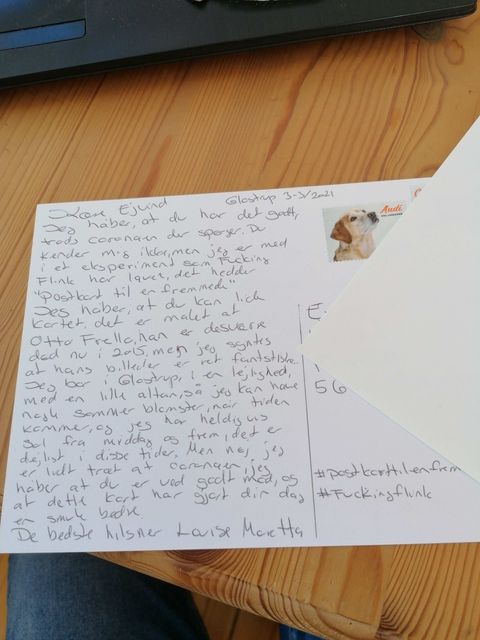 Kære Ejvind
Glostrup 3-3/2021
Jeg håber, at du har det godt,
trods coronaen der spøger. Du
kender mig ikke, men jeg er med
i et eksperiment som Fucking
Flink har lavet, det hedder
"Postkort til en fremmede"
Jeg håber, at du kan lide
kortet, det er malet af
Otto Frello, han er desværre
død nu i 2015, men jeg syntes
at hans billeder er ret
Jeg bor i Glostrup, i en lejlighed,
med en lille altan, så jeg kan have
nogle sommer blomster, når tiden
kommer, og jeg har heldigvis
sol fra middag og frem, det er
dejligt i disse tider. Men nej, jeg
er lidt træt af coronaen, jeg
håber at du er ved godt mod, og
at dette kort har gjort din dag
en smule bedre
De bedste hilsner Louise
Audi
E
56
#postkorttilenfrem
#Fuckingflink